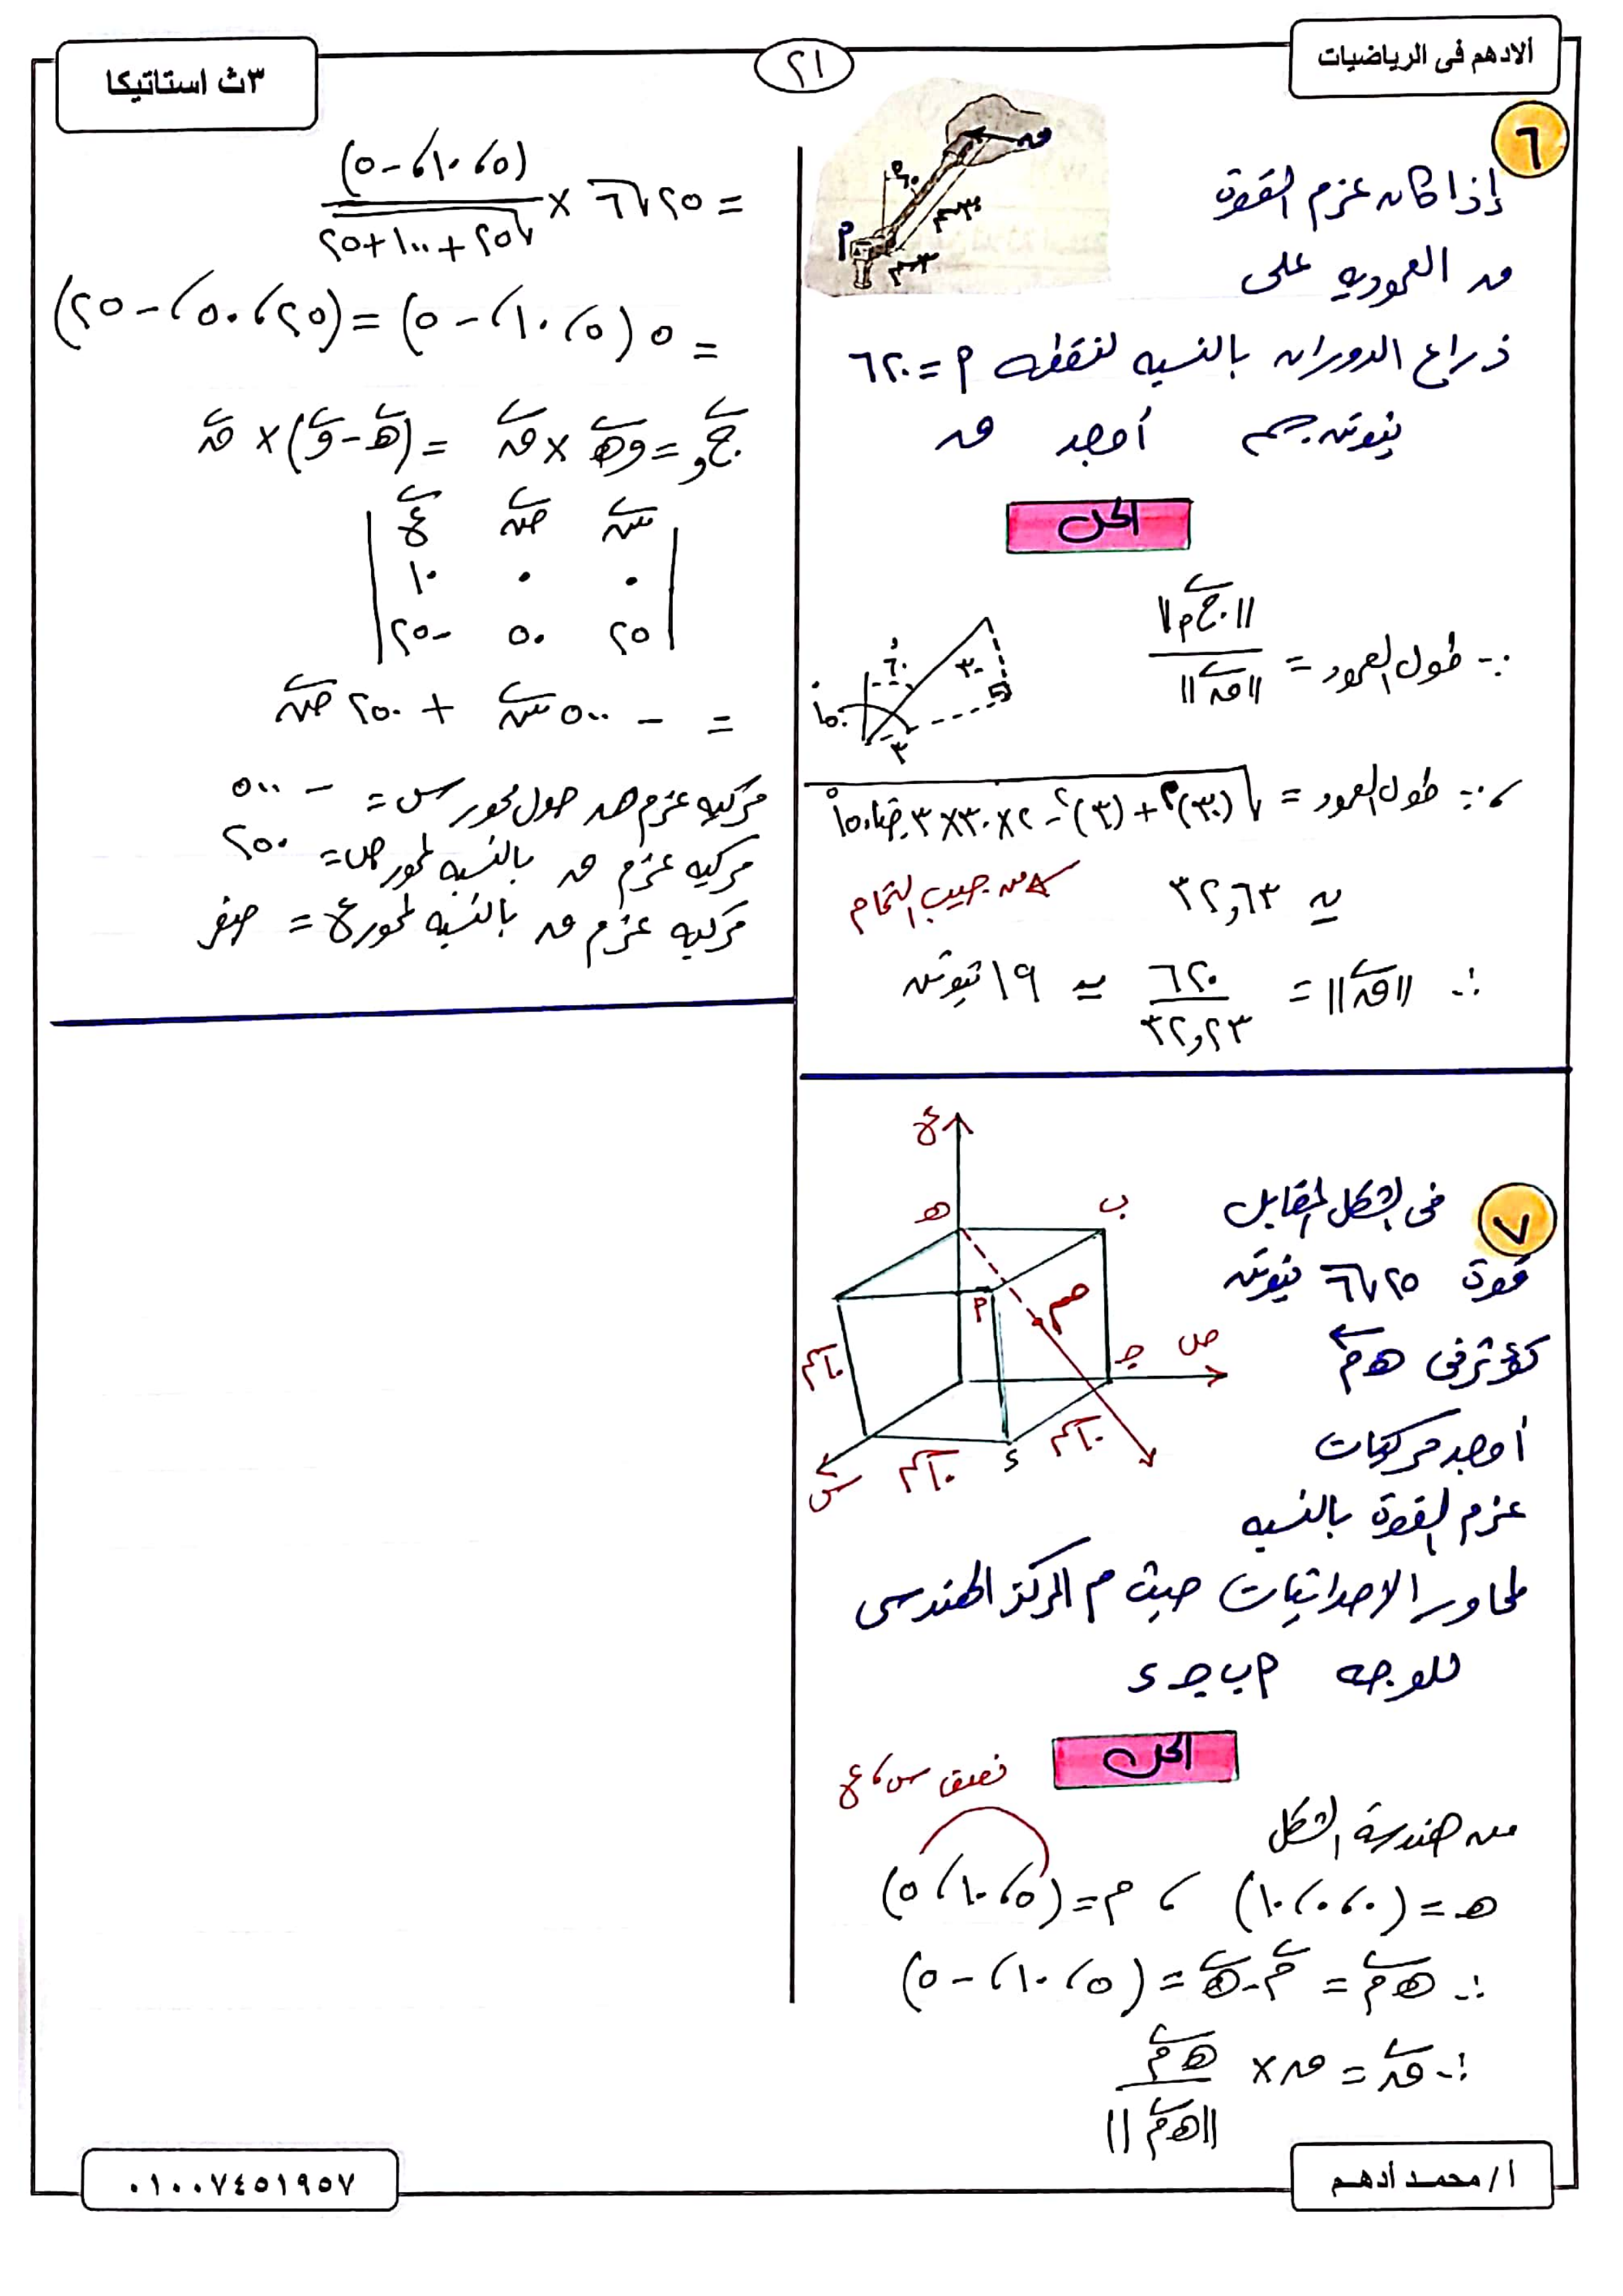 الادهم فى الرياضيات
٢١
٣ث استاتيكا
٦
إذا كان عزم القوة
ق العمودية على
ذراع الدوران بالنسبه لنقطه م = ٦٢٠
نيوتن.سم أوجد ق
ق
٦٠°
٣٠سم
٣سم
م
الحل
∵ طول العمود = ||ج م|| / ||ق||
٦٠°
٣٠
١٥٠°
٣
، ∵ طول العمود = √(٣٠)² + (٣)² - ٢×٣٠×٣ جتا١٥٠°
≃ ٣٢,٦٣
من جيب التمام
∴ ||ق|| = ٦٢٠ / ٣٢,٢٣ ≃ ١٩ نيوتن
٧
فى الشكل المقابل
قوة ٢٥√٦ نيوتن
تؤثر فى هـ م
أوجد مركبات
عزم القوة بالنسبه
لمحاور الاحداثيات حيث م المركز الهندسى
للوجه م ب جـ ء
ع
هـ
ب
م
م
جـ
ص
١٠سم
١٠سم
١٠سم
ء
س
الحل
نصف س ، ع
من هندسة الشكل
هـ = (٠،٠،١٠) ، م = (٥،١٠،٥)
∴ هـ م = م - هـ = (٥،١٠،-٥)
∴ ق = ق × هـ م / ||هـ م||
= ٢٥√٦ × (٥،١٠،-٥) / √٢٥+١٠٠+٢٥
= ٥(٥،١٠،-٥) = (٢٥،٥٠،-٢٥)
ج و = وهـ × ق = (هـ - و) × ق
س ص ع
٠ ٠ ١٠
٢٥ ٥٠ -٢٥
= - ٥٠٠ س + ٢٥٠ ص
مركبه عزم ق حول محور س = - ٥٠٠
مركبه عزم ق بالنسبه لمحور ص = ٢٥٠
مركبه عزم ق بالنسبه لمحور ع = صفر
أ / محمد أدهم
٠١٠٠٧٤٥١٩٥٧